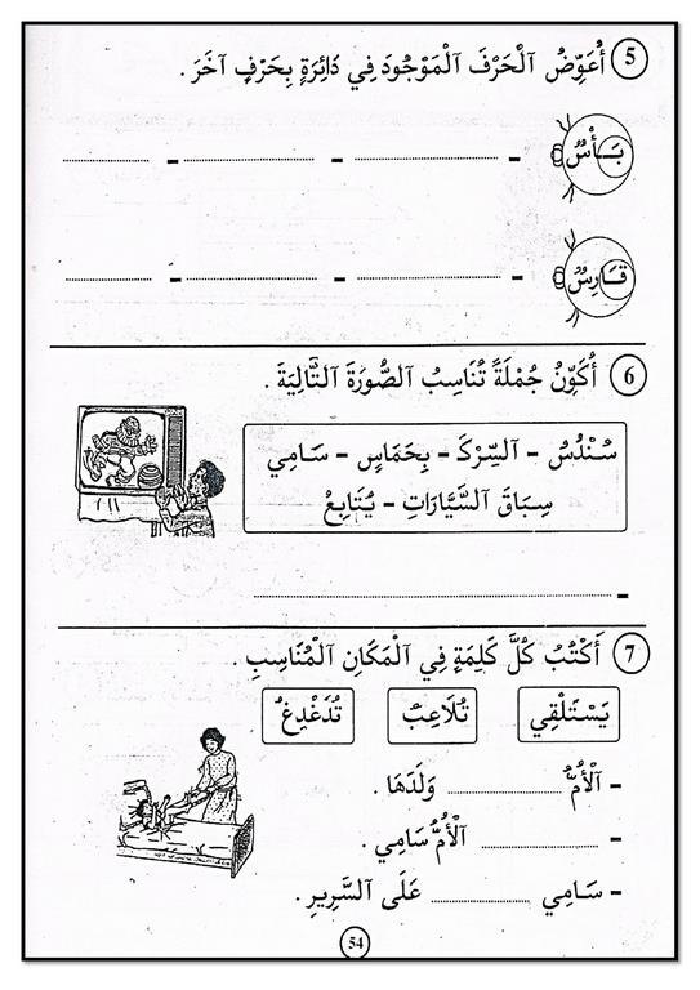 5 أُعَوِّضُ ٱلْحَرْفَ ٱلْمَوْجُودَ فِي دَائِرَةٍ بِحَرْفٍ آخَرَ .
بَـأْسٌ - ........ - ........ - ........
قَـارِسٌ - ........ - ........ - ........
6 أُكَوِّنُ جُمْلَةً تُنَاسِبُ ٱلصُّورَةَ ٱلتَّالِيَةَ .
سُنْدُسٌ - ٱلسِّرْكَ - بِحَمَاسٍ - سَامِي
سِبَاقَ ٱلسَّيَّارَاتِ - يُتَابِعُ
- ........
7 أَكْتُبُ كُلَّ كَلِمَةٍ فِي ٱلْمَكَانِ ٱلْمُنَاسِبِ .
يَسْتَلْقِي تُلَاعِبُ تُدَغْدِغُ
- ٱلْأُمُّ ........ وَلَدَهَا .
- ........ ٱلْأُمُّ سَامِي .
- سَامِي ........ عَلَى ٱلسَّرِيرِ .
54